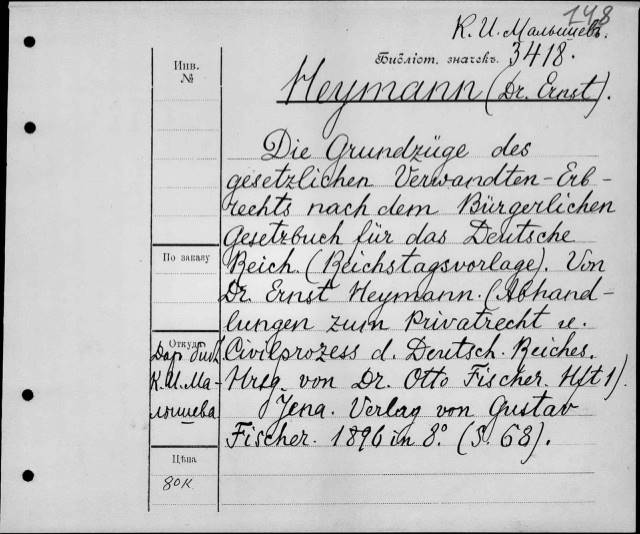 148
К. И. Малышевъ.
Библіот. значекъ. 3418.
Инв.
№
Heymann (Dr. Ernst).
Die Grundzüge des
gesetzlichen Verwandten-Erb-
rechts nach dem Bürgerlichen
Gesetzbuch für das Deutsche
По заказу
Reich. (Reichstagsvorlage). Von
Dr. Ernst Heymann. (Abhand-
lungen zum Privatrecht u.
Откуда
Civilprozess d. Deutsch. Reiches.
Даръ библ.
К. И. Ма-
лышева
Hrsg. von Dr. Otto Fischer. Hft 1).
Jena. Verlag von Gustav
Fischer. 1896 in 8.° (S. 68).
Цѣна
80к